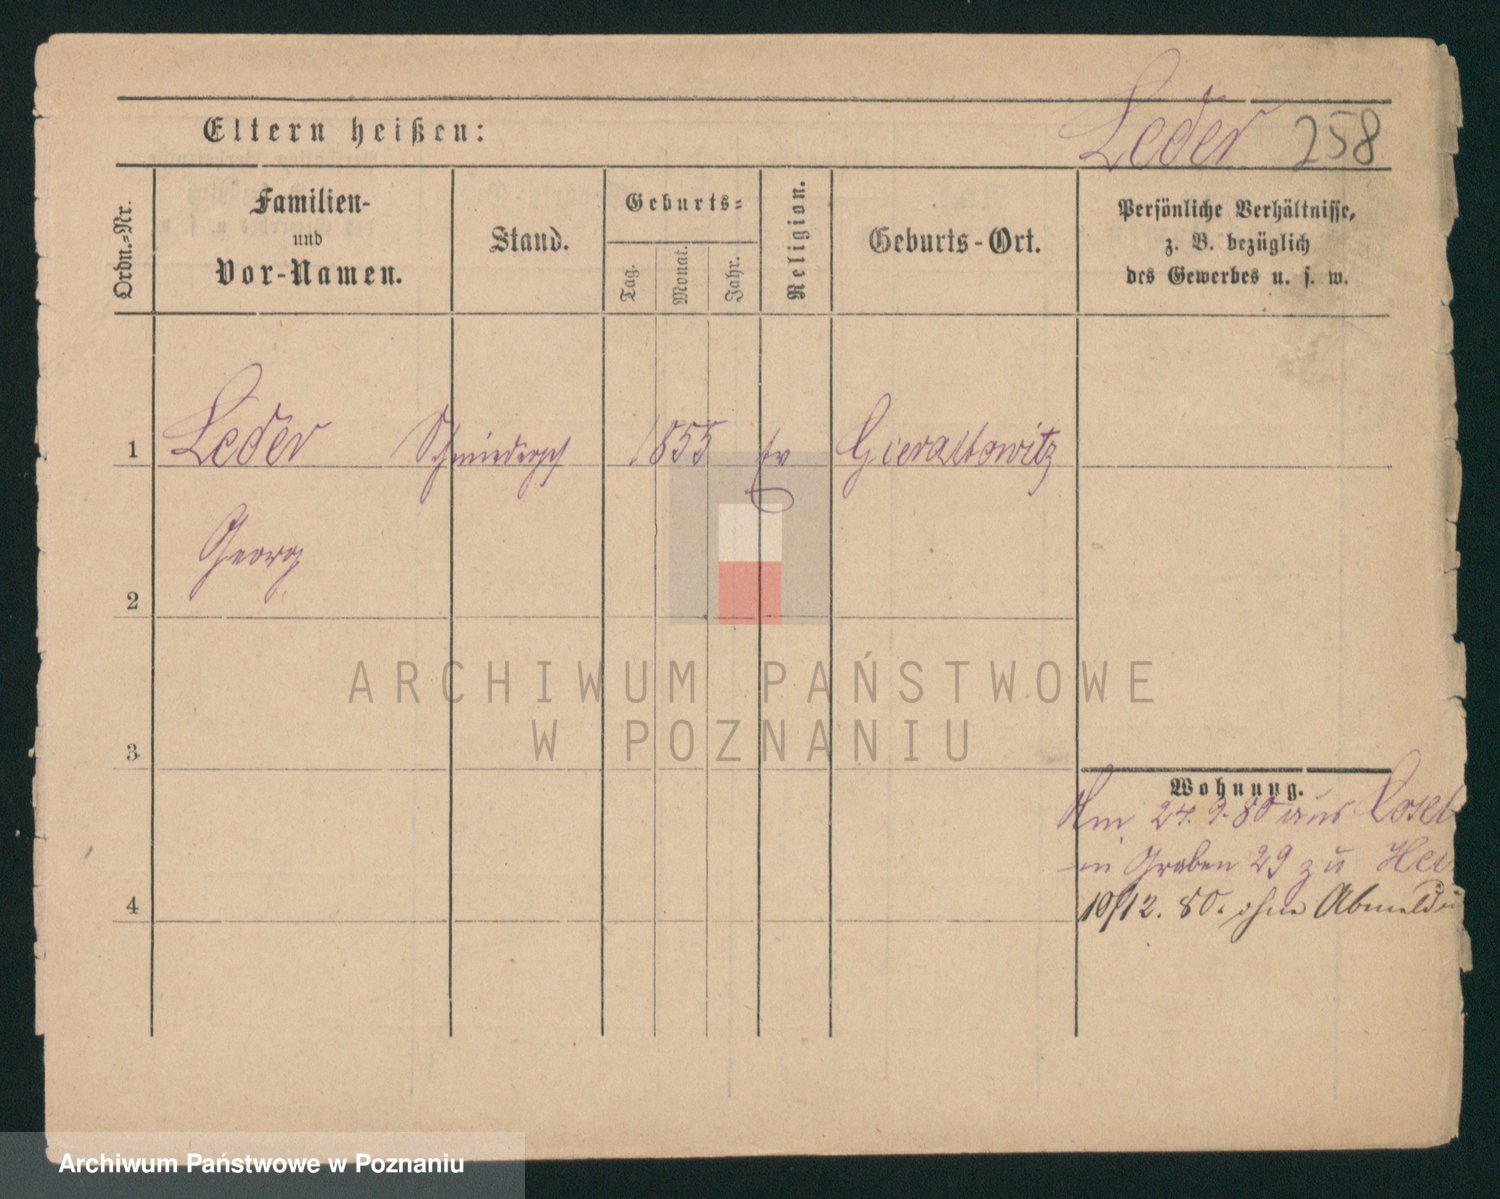 Eltern heißen:
Leder 258
Ordn.-Nr.
Familien-
und
Vor-Namen.
Stand.
Geburts-
Tag.
Monat.
Jahr.
Religion.
Geburts-Ort.
Persönliche Verhältnisse,
z. B. bezüglich
des Gewerbes u. s. w.
1 Leder 1855 ev
Georg
2
ARCHIWUM PAŃSTWOWE
W POZNANIU
3
Wohnung.
Am 24. 9. 80 aus
in Graben 29 zu
4
10/12. 80. ohne
Archiwum Państwowe w Poznaniu